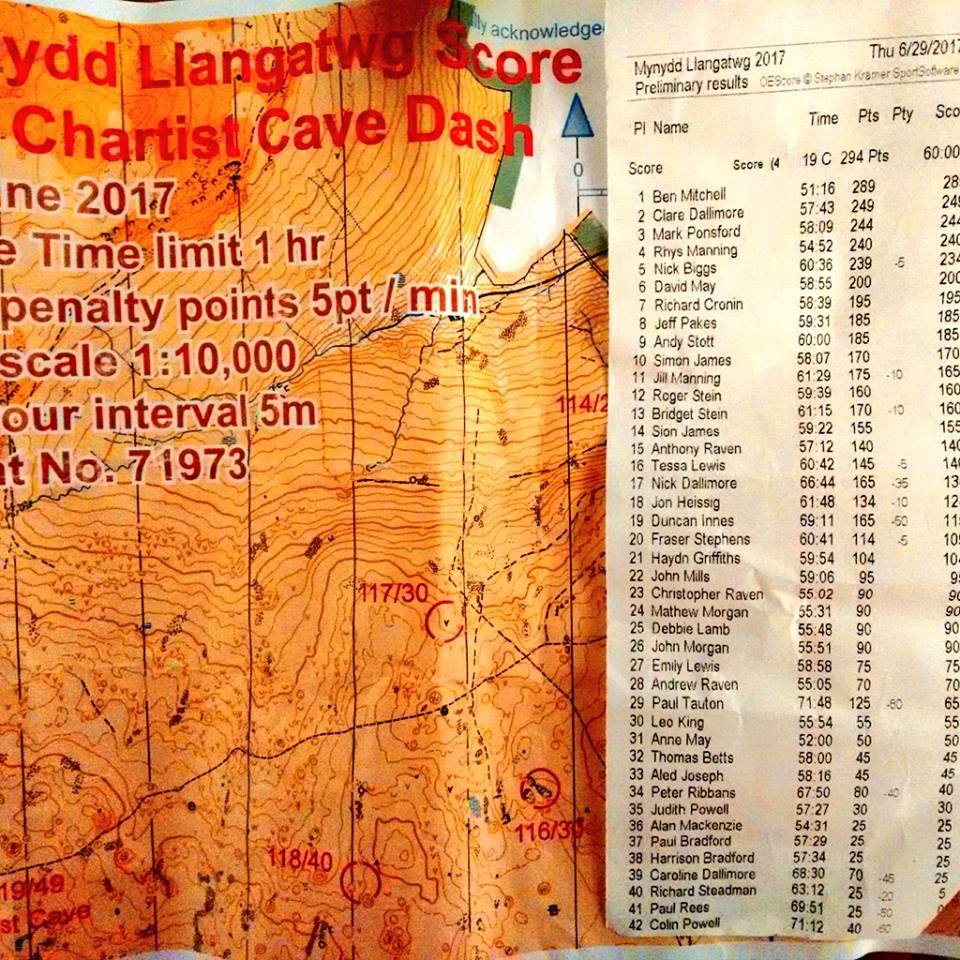 lly acknowledge
ydd Llangatwg Score
Chartist Cave Dash
une 2017
e Time limit 1 hr
penalty points 5pt / min
scale 1:10,000
our interval 5m
nt No. 71973
0
114/2
117/30
116/30
118/40
19/49
st Cave
Mynydd Llangatwg 2017 Thu 6/29/2017
Preliminary results OEScore © Stephan Krämer SportSoftware
Pl Name Time Pts Pty Sco
Score Score (4 19 C 294 Pts 60:00
1 Ben Mitchell 51:16 289 28
2 Clare Dallimore 57:43 249 249
3 Mark Ponsford 58:09 244 244
4 Rhys Manning 54:52 240 240
5 Nick Biggs 60:36 239 -5 234
6 David May 58:55 200 200
7 Richard Cronin 58:39 195 195
8 Jeff Pakes 59:31 185 185
9 Andy Stott 60:00 185 185
10 Simon James 58:07 170 170
11 Jill Manning 61:29 175 -10 165
12 Roger Stein 59:39 160 160
13 Bridget Stein 61:15 170 -10 160
14 Sion James 59:22 155 155
15 Anthony Raven 57:12 140 140
16 Tessa Lewis 60:42 145 -5 140
17 Nick Dallimore 66:44 165 -35 13
18 Jon Heissig 61:48 134 -10 12
19 Duncan Innes 69:11 165 -50 11
20 Fraser Stephens 60:41 114 -5 10
21 Haydn Griffiths 59:54 104 104
22 John Mills 59:06 95 9
23 Christopher Raven 55:02 90 90
24 Mathew Morgan 55:31 90 90
25 Debbie Lamb 55:48 90 90
26 John Morgan 55:51 90 90
27 Emily Lewis 58:58 75 75
28 Andrew Raven 55:05 70 70
29 Paul Tauton 71:48 125 -60 65
30 Leo King 55:54 55 55
31 Anne May 52:00 50 50
32 Thomas Betts 58:00 45 45
33 Aled Joseph 58:16 45 45
34 Peter Ribbans 67:50 80 -40 40
35 Judith Powell 57:27 30 30
36 Alan Mackenzie 54:31 25 25
37 Paul Bradford 57:29 25 25
38 Harrison Bradford 57:34 25 25
39 Caroline Dallimore 68:30 70 -45 25
40 Richard Steadman 63:12 25 -20 5
41 Paul Rees 69:51 25 -50 0
42 Colin Powell 71:12 40 -60